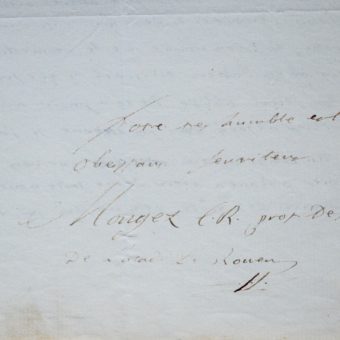 votre tres humble et
obeissant serviteur
Mongez C.R. prof. de
de l'acad. de Rouen